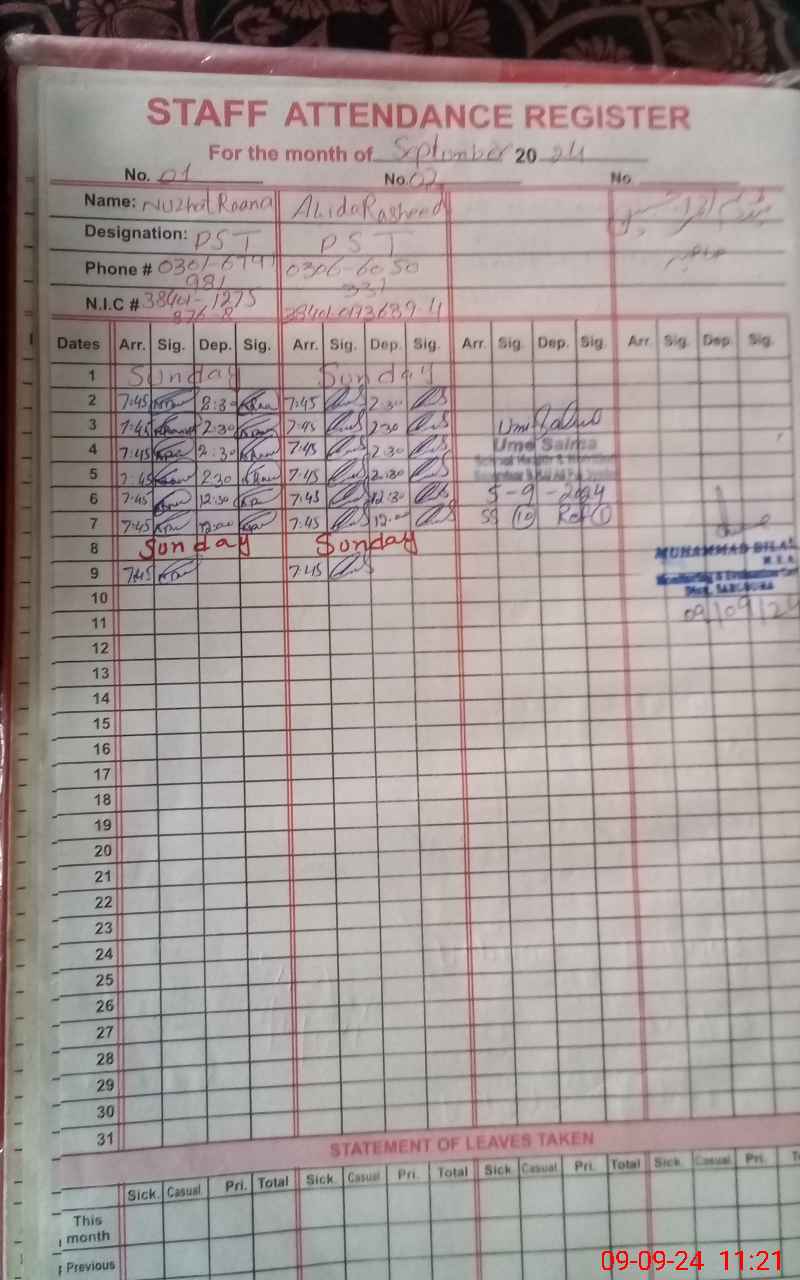 STAFF ATTENDANCE REGISTER
For the month of September 20 24
No. 01 No. 02 No
Name: Nuzhat Raana Abida Rasheed
Designation: PST PST
Phone # 0301-6741 0306-6050
981 331
N.I.C # 38401-1275 38401-0173689-4
876-8
Dates Arr. Sig. Dep. Sig. Arr. Sig. Dep. Sig. Arr. Sig. Dep. Sig. Arr Sig. Dep Sig.
1 Sunday Sunday
2 7:45 2:30 7:45 2:30
3 7:45 2:30 7:45 2:30
4 7:45 2:30 7:45 2:30 Ume Salma
5 7:45 2:30 7:45 2:30
6 7:45 12:30 7:45 12:30 5-9-2024
7 7:45 12:00 7:45 12:00
8 Sunday Sunday MUHAMMAD BILAL
9 7:45 7:45 Monitoring & Evaluation
10 09/09/24
11
12
13
14
15
16
17
18
19
20
21
22
23
24
25
26
27
28
29
30
31
STATEMENT OF LEAVES TAKEN
Sick. Casual Pri. Total Sick. Casual Pri. Total Sick. Casual Pri. Total Sick. Casual Pri.
This
month
Previous
09-09-24 11:21